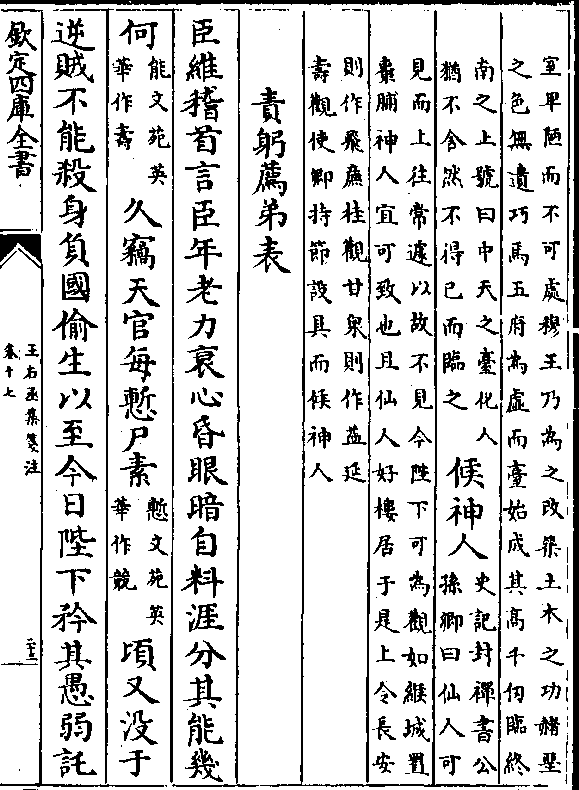 室卑陋而不可處穆王乃為之改築土木之功赭堊
之色無遺巧焉五府為虛而臺始成其高千仞臨終
南之上號曰中天之臺化人
猶不舍然不得已而臨之
候神人
史記封禪書公
孫卿曰仙人可
見而上往常遽以故不見今陛下可為觀如緱城置
棗脯神人宜可致也且仙人好樓居于是上令長安
則作飛廉桂觀甘泉則作益延
壽觀使卿持節設具而候神人
責躬薦弟表
臣維稽首言臣年老力衰心昏眼暗自料涯分其能幾
何
能文苑英
華作壽
久竊天官每慙尸素
慙文苑英
華作競
頃又没于
逆賊不能殺身負國偷生以至今日陛下矜其愚弱託
欽定四庫全書
王右丞集箋注
卷十七
二十三